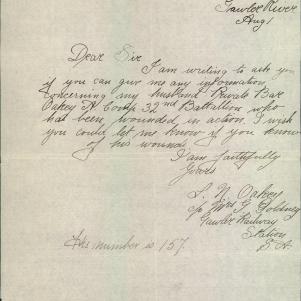 Gawler River
Aug 1
Dear Sir
I am writing to ask you
if you can give me any information
concerning my husband Private
Oakey A Comp 32nd Battallion who
has been wounded in action. I wish
you could let me know if you know
of his wounds
I am faithfully
Yours
S. N. Oakey
c/o Mrs G Goldney
Gawler Railway
Station
S.A.
His number is 157.